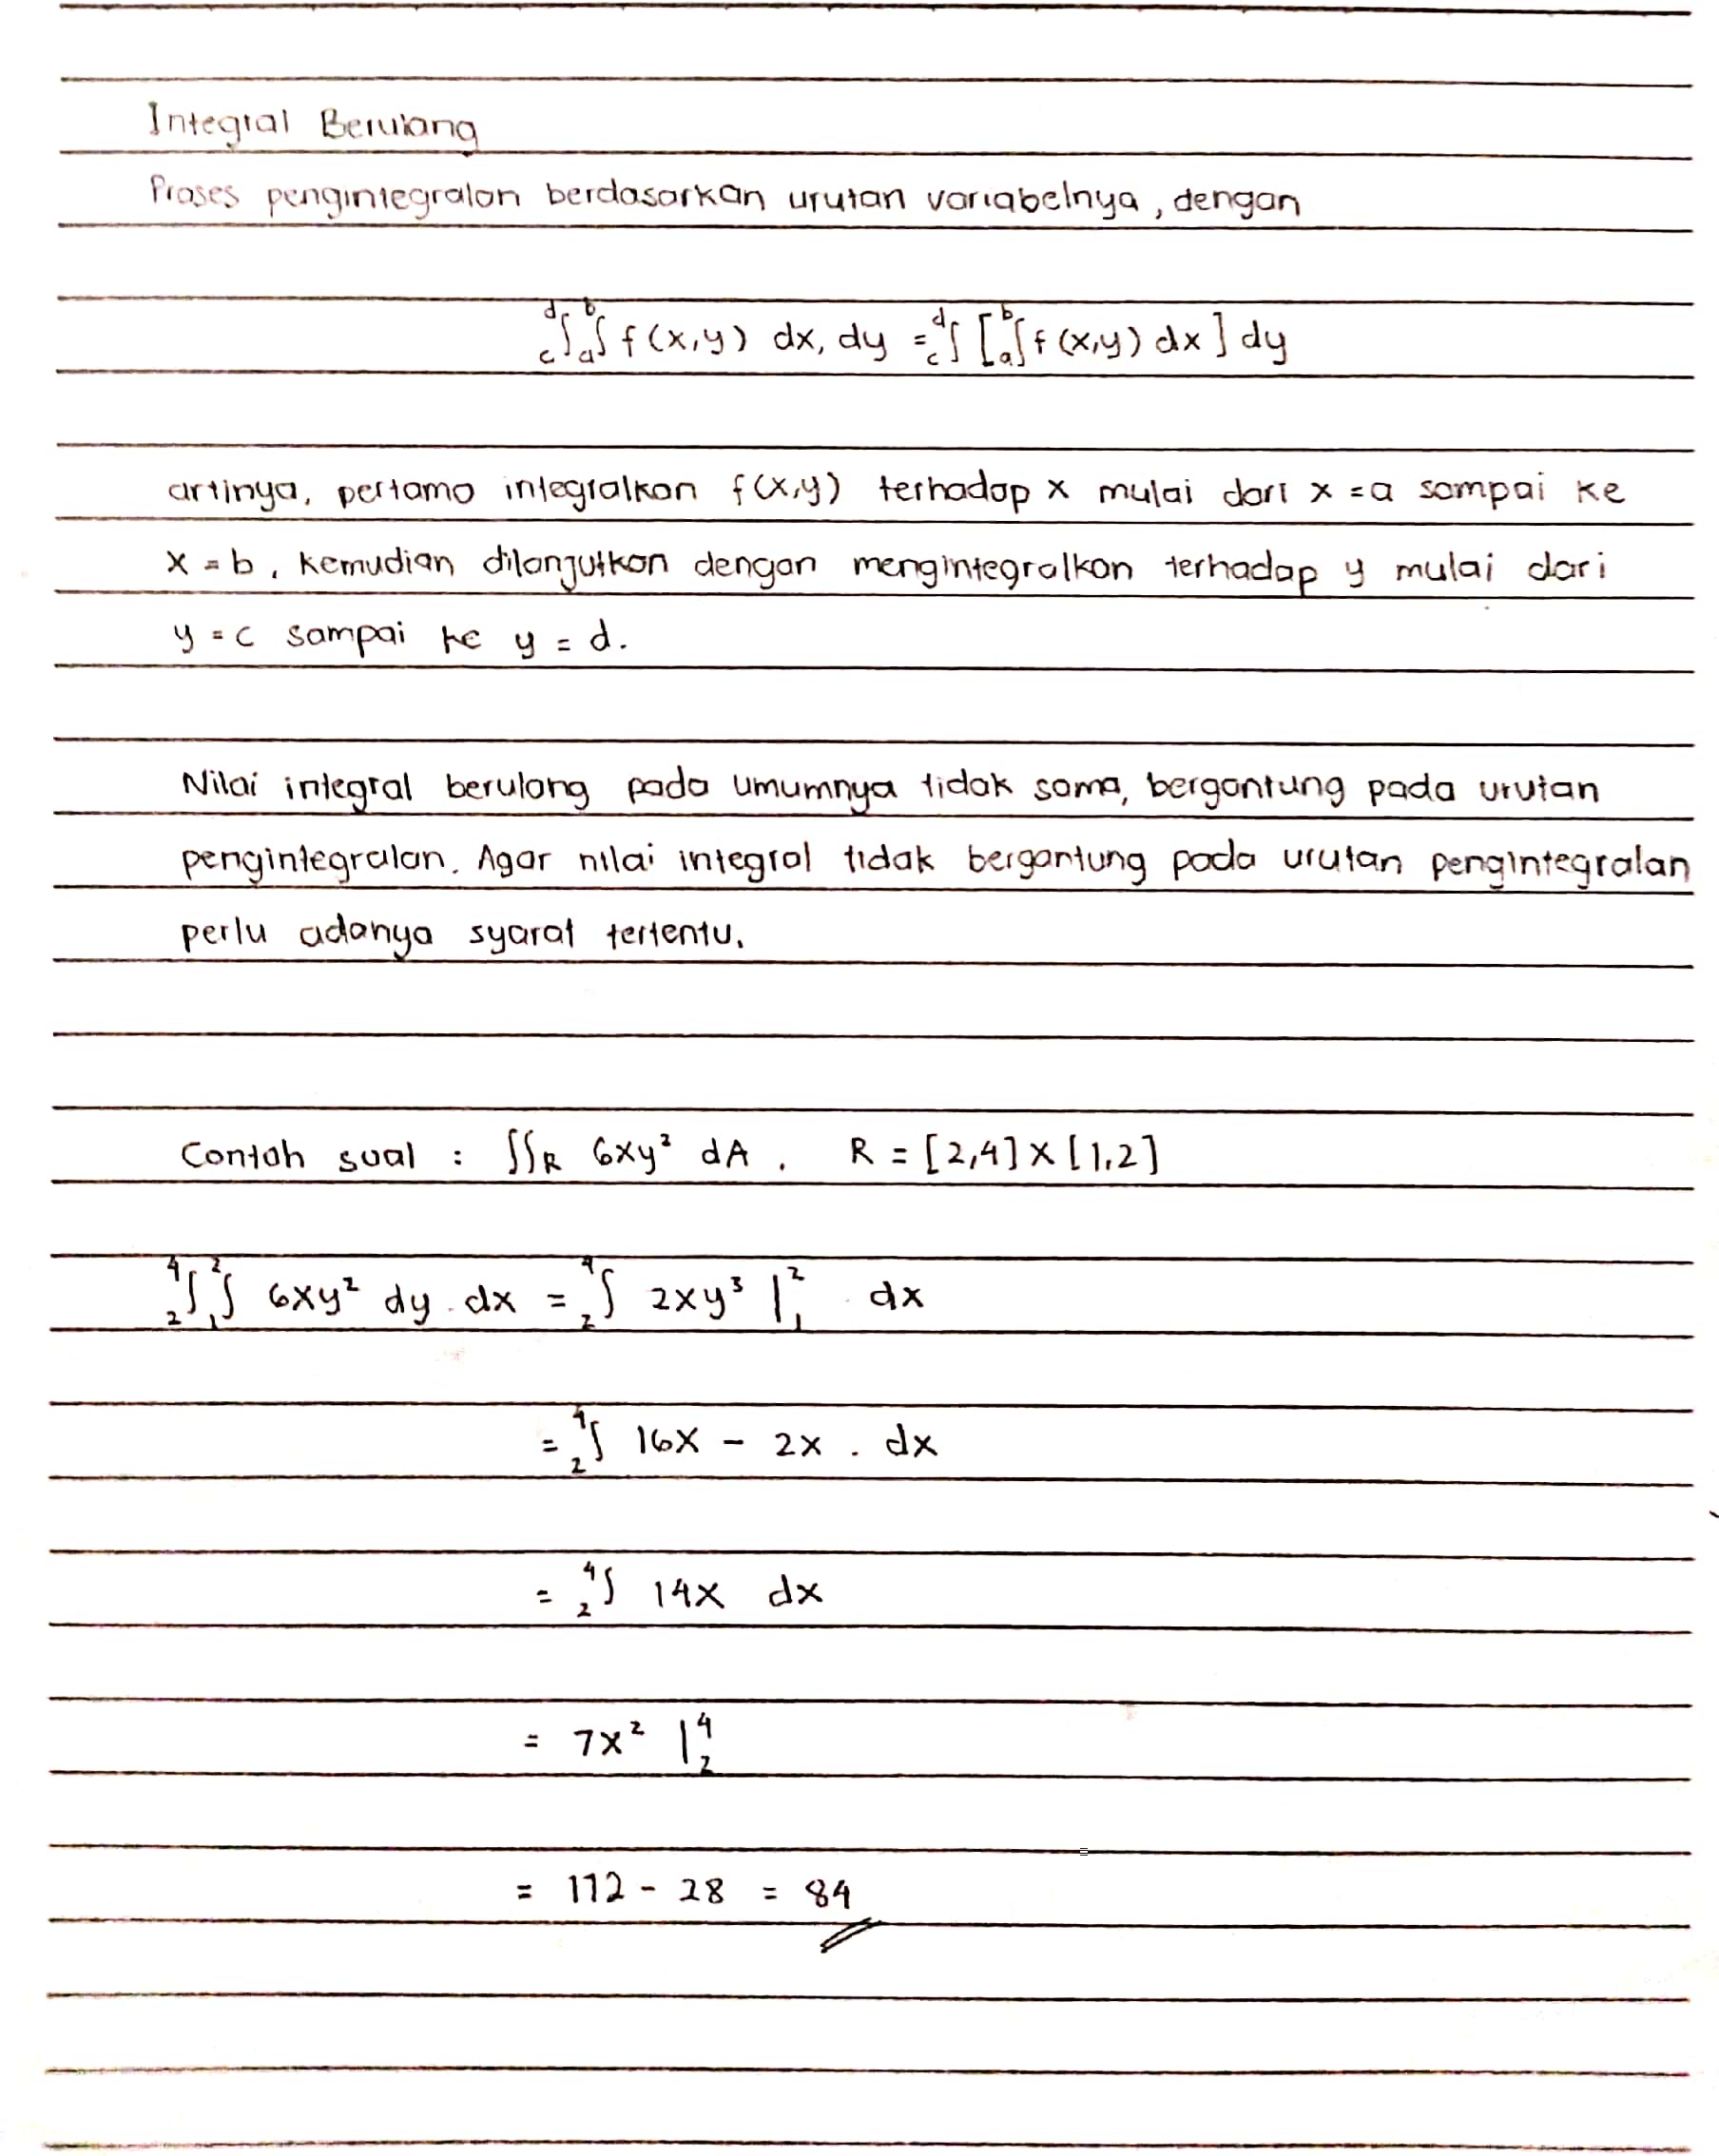 Integral Berulang
Proses pengintegralan berdasarkan urutan variabelnya, dengan
c∫d a∫b f(x,y) dx, dy = c∫d [a∫b f(x,y) dx] dy
artinya, pertama integralkan f(x,y) terhadap x mulai dari x = a sampai ke
x = b, kemudian dilanjutkan dengan mengintegralkan terhadap y mulai dari
y = c sampai ke y = d.
Nilai integral berulang pada umumnya tidak sama, bergantung pada urutan
pengintegralan. Agar nilai integral tidak bergantung pada urutan pengintegralan
perlu adanya syarat tertentu.
Contoh soal : ∫∫R 6xy² dA . R = [2,4] X [1,2]
2∫4 1∫2 6xy² dy . dx = 2∫4 2xy³ |₁² dx
= 2∫4 16x - 2x . dx
= 2∫4 14x dx
= 7x² |₂⁴
= 112 - 28 = 84